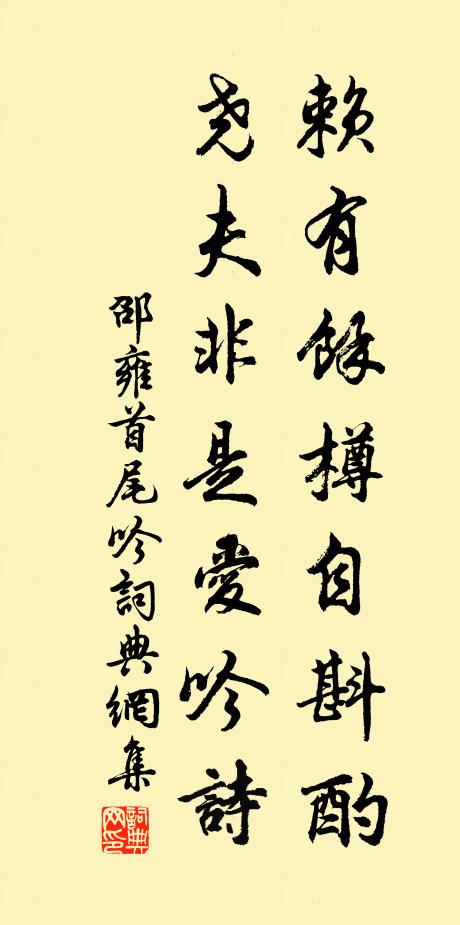 賴有餘樽自斟酌
尭夫非是愛吟詩
邵雍首尾吟詞典網集
詞典网印